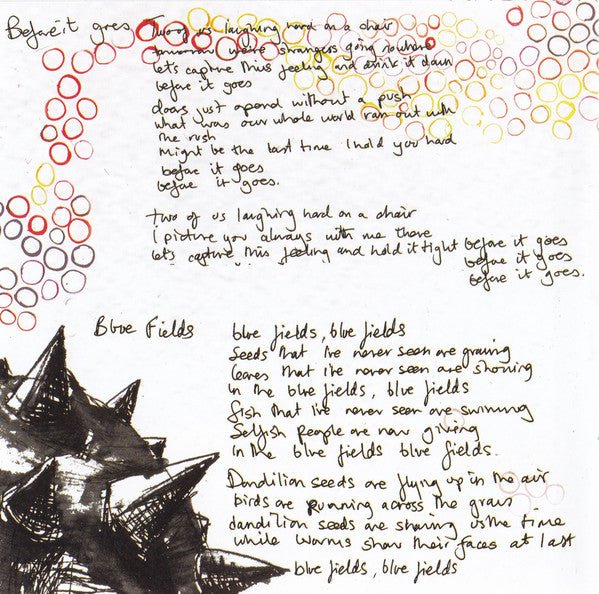 Before it goes
Two of us laughing hard on a chair
were strangers going nowhere
let's capture this feeling and drink it down
before it goes
doors just opened without a push
what was our whole world ran out with
the rush
Might be the last time I hold you hard
before it goes
before it goes.
two of us laughing hard on a chair
I picture you always with me there
let's capture this feeling and hold it tight before it goes
before it goes
before it goes.
Blue Fields
blue fields, blue fields
Seeds that I've never seen are growing
leaves that I've never seen are showing
in the blue fields, blue fields
fish that I've never seen are swimming
Selfish people are now giving
in the blue fields blue fields.
Dandilion seeds are flying up in the air
birds are running across the grass
dandilion seeds are sharing us the time
while worms show their faces at last
blue fields, blue fields